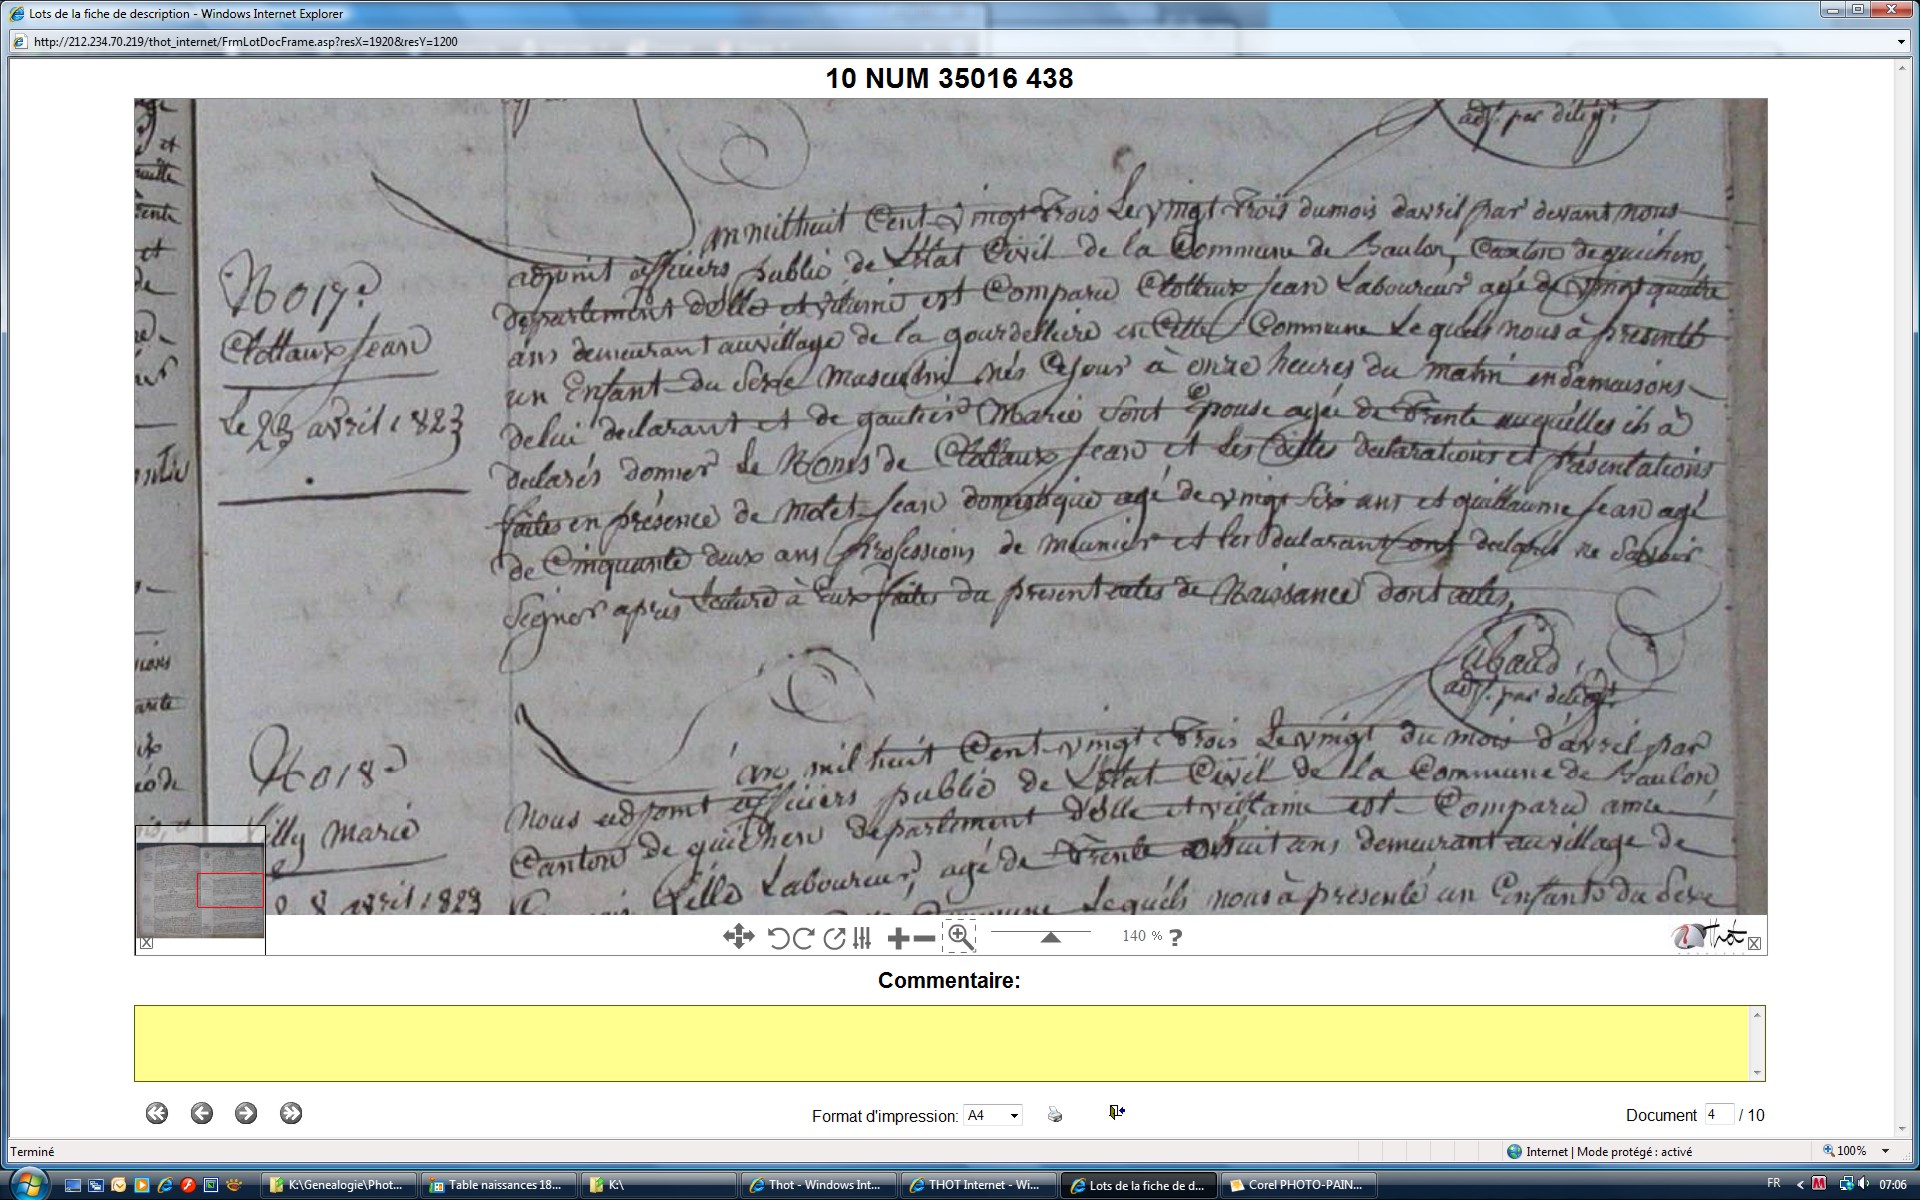 Lots de la fiche de description - Windows Internet Explorer
http://212.234.70.219/thot_internet/FrmLotDocFrame.asp?resX=1920&resY=1200
10 NUM 35016 438
adj. par délég.
an mil huit Cent vingt trois Le vingt trois du mois d'avril par devant nous
adjoint officiers public de L'Etat Civil de la Commune de Baulon, Canton de guichen,
departement d'ille et vilaine est Comparu Clottaux Jean Laboureur agé de vingt quatre
ans demeurant au village de la gourdelliere en Cette Commune Le quels nous à présenté
un Enfant du Sexe Masculin nés Ce jour à onze heures du matin en sa maisons
de lui declarant et de gautier Marie sont Epouse agée de trente auquelles ils à
declarés donner Le Noms de Clottaux Jean et Les dittes declarations et présentations
faites en présence de Molet Jean domestique agé de vingt six ans et guillaume Jean agé
de Cinquante deux ans Professions de meunier et les declarant ont declarés ne Savoir
Seigner après Lecture à Eux faites du present actes de Naissance dont actes,
No 17e
Clottaux Jean
Le 23 avril 1823
adj. par délég.
No 18e
Marie
8 avril 1823
an mil huit Cent vingt trois Le vingt du mois d'avril par
Nous adjoint officiers public de L'Etat Civil de la Commune de Baulon,
Canton de guichen departement d'ille et villaine est Comparu
Laboureur, agé de trente huit ans demeurant au village de
Commune Lequels nous à présenté un Enfants du Sexe
140 % ?
Thot
Commentaire:
Format d'impression: A4
Document 4 / 10
Terminé
Internet | Mode protégé : activé
100%
K:\Genealogie\Phot...
Table naissances 18...
K:\
Thot - Windows Int...
THOT Internet - Wi...
Lots de la fiche de d...
Corel PHOTO-PAIN...
FR
07:06